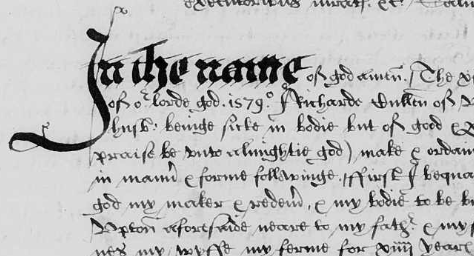 In the name of god amen. The
of or lorde god. 1579o I Richarde of
husb: beinge sicke in bodie but of good &
praise be unto almightie god) make & ordain
in manr & forme followinge. ffirst I bequa
god my maker & redemr, & my bodie to be b
Upton aforesaide neare to my fathr & my
nes my wyffe my ferme for xiiii years